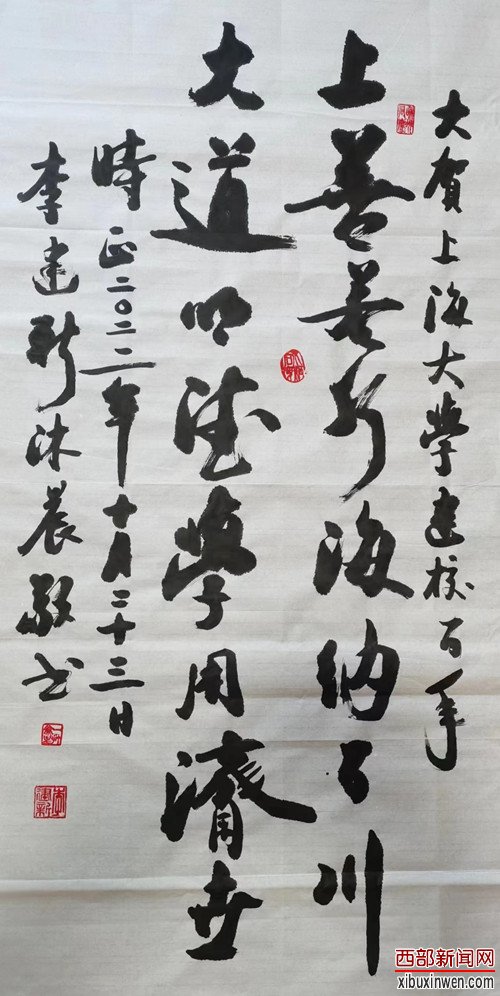 大賀上海大學建校百年
上善若行海纳百川
大道明德學用濟世
時正二〇二二年十月二十三日
李建新沐晨敬书
李建新
西部新闻网
xibuxinwen.com